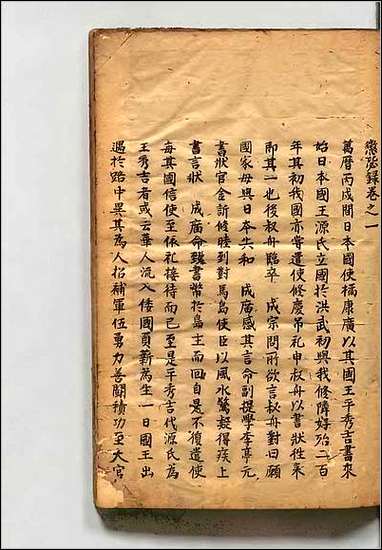 懲毖録卷之一
萬曆丙戌間日本國使橘康廣以其國王平秀吉書來
始日本國王源氏立國於洪武初與我修隣好殆二百
年其初我國亦嘗遣使修慶吊礼申叔舟以書狀往来
即其一也後叔舟臨卒 成宗問所欲言叔舟對曰願
國家毋與日本失和 成廣感其言命副提學李亨元
書狀官金訢修睦到對馬島使臣以風水驚疑得疾上
書言狀 成廣命致書幣於島主而回自是不復遣使
每其國信使至依礼接待而已至是平秀吉代源氏為
王秀吉者或云華人流入倭國負薪為生一日國王出
遇於路中異其為人招補軍伍勇力善鬪積功至大官